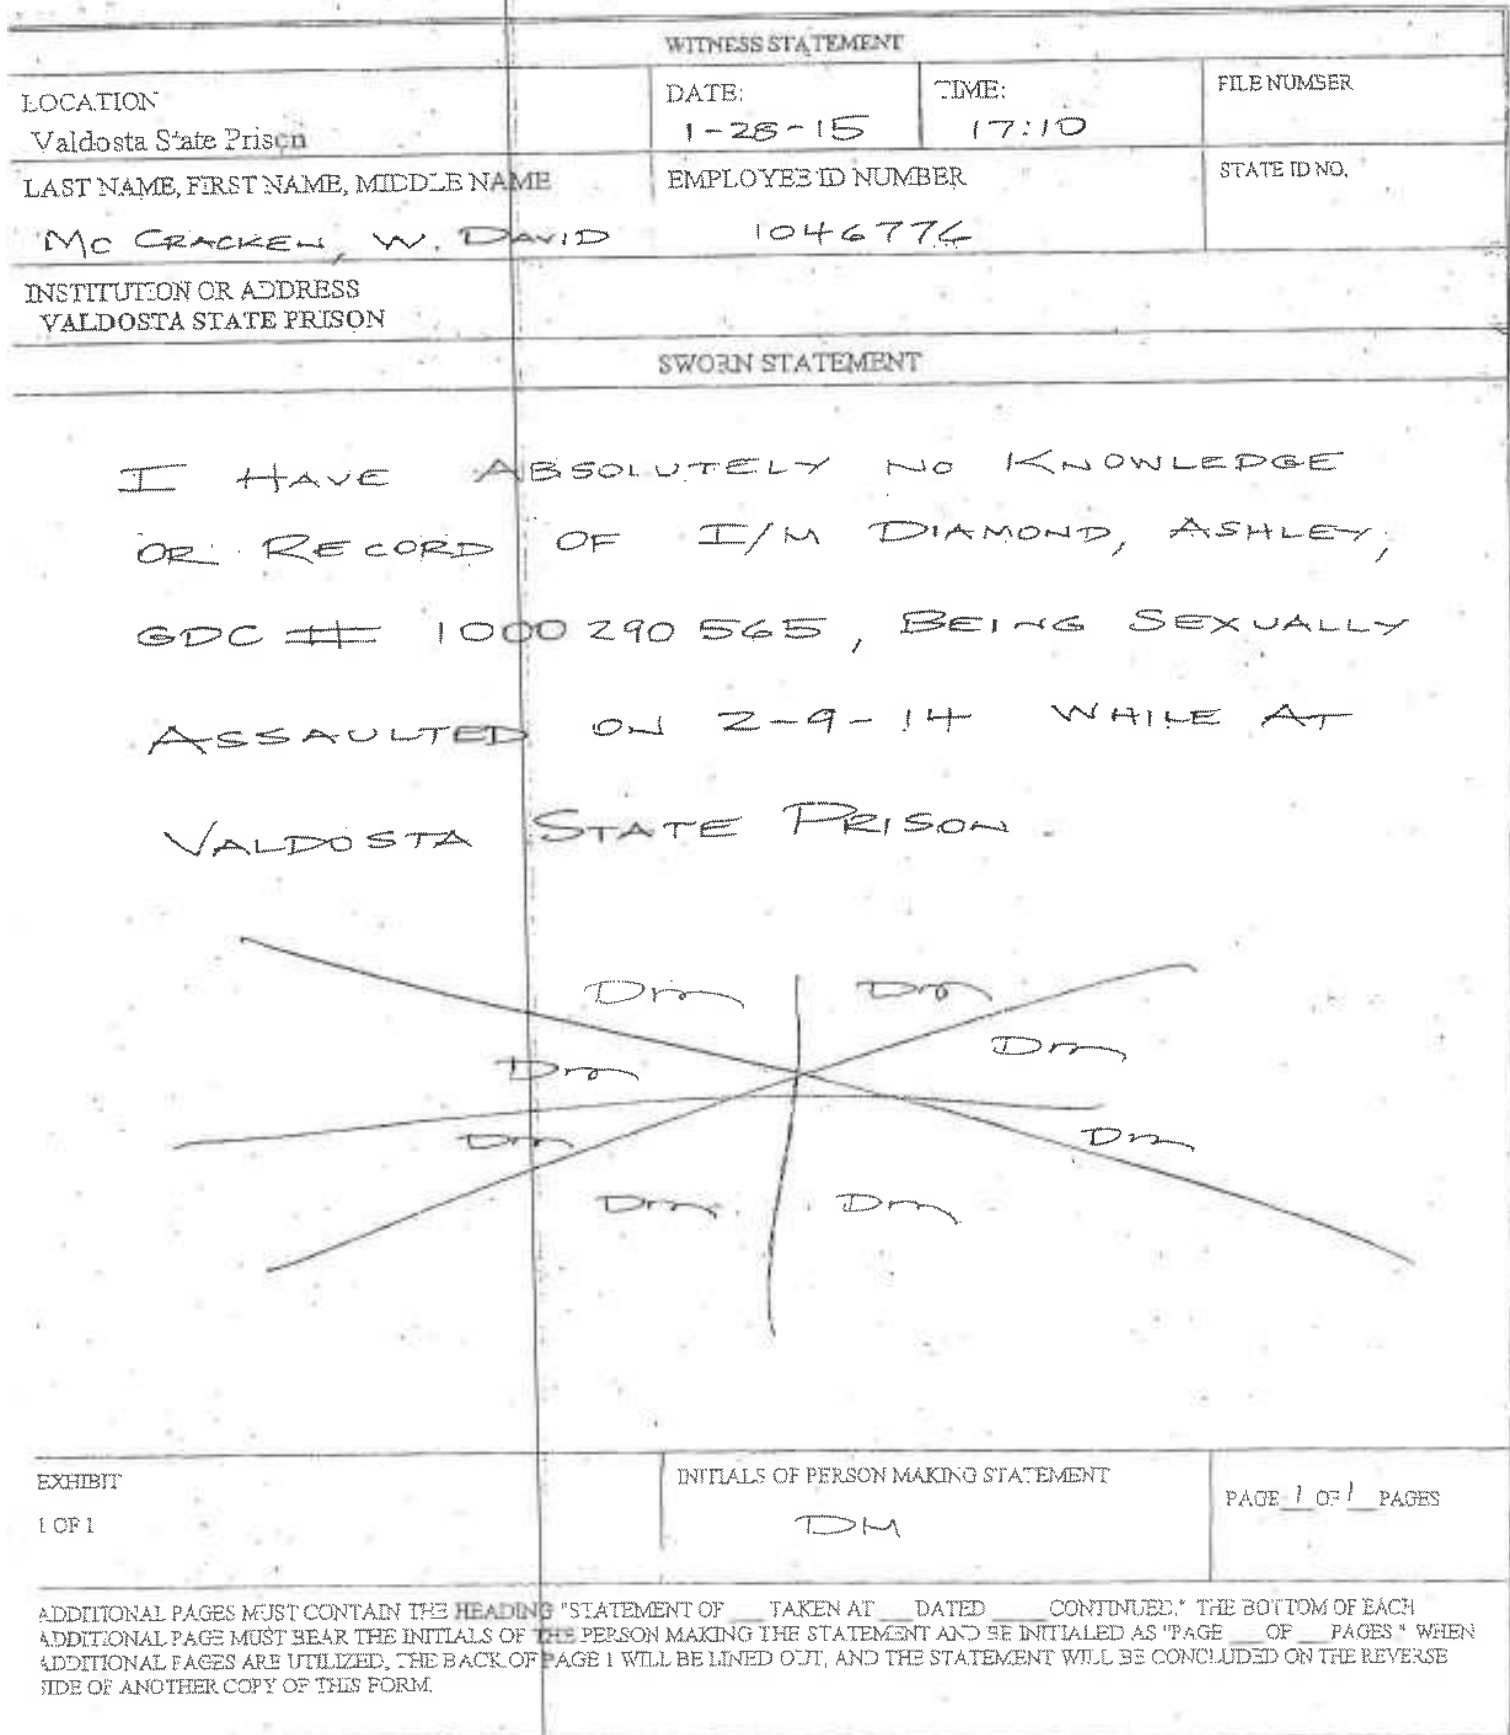 WITNESS STATEMENT
LOCATION
Valdosta State Prison
DATE:
1-28-15
TIME:
17:10
FILE NUMBER
LAST NAME, FIRST NAME, MIDDLE NAME
MC CRACKEN, W. DAVID
EMPLOYEE ID NUMBER
STATE ID NO.
INSTITUTION OR ADDRESS
VALDOSTA STATE PRISON
SWORN STATEMENT
I HAVE ABSOLUTELY NO KNOWLEDGE
OR RECORD OF I/M DIAMOND, ASHLEY,
GDC # 1000290565, BEING SEXUALLY
ASSAULTED ON 2-9-14 WHILE AT
VALDOSTA STATE PRISON.
Dm Dm
Dm Dm
Dm Dm
Dm Dm
EXHIBIT
1 OF 1
INITIALS OF PERSON MAKING STATEMENT
DM
PAGE 1 OF 1 PAGES
ADDITIONAL PAGES MUST CONTAIN THE HEADING "STATEMENT OF ___ TAKEN AT ___ DATED ____ CONTINUED." THE BOTTOM OF EACH
ADDITIONAL PAGE MUST BEAR THE INITIALS OF THE PERSON MAKING THE STATEMENT AND BE INITIALED AS "PAGE ___ OF ___ PAGES." WHEN
ADDITIONAL PAGES ARE UTILIZED, THE BACK OF PAGE 1 WILL BE LINED OUT, AND THE STATEMENT WILL BE CONCLUDED ON THE REVERSE
SIDE OF ANOTHER COPY OF THIS FORM.